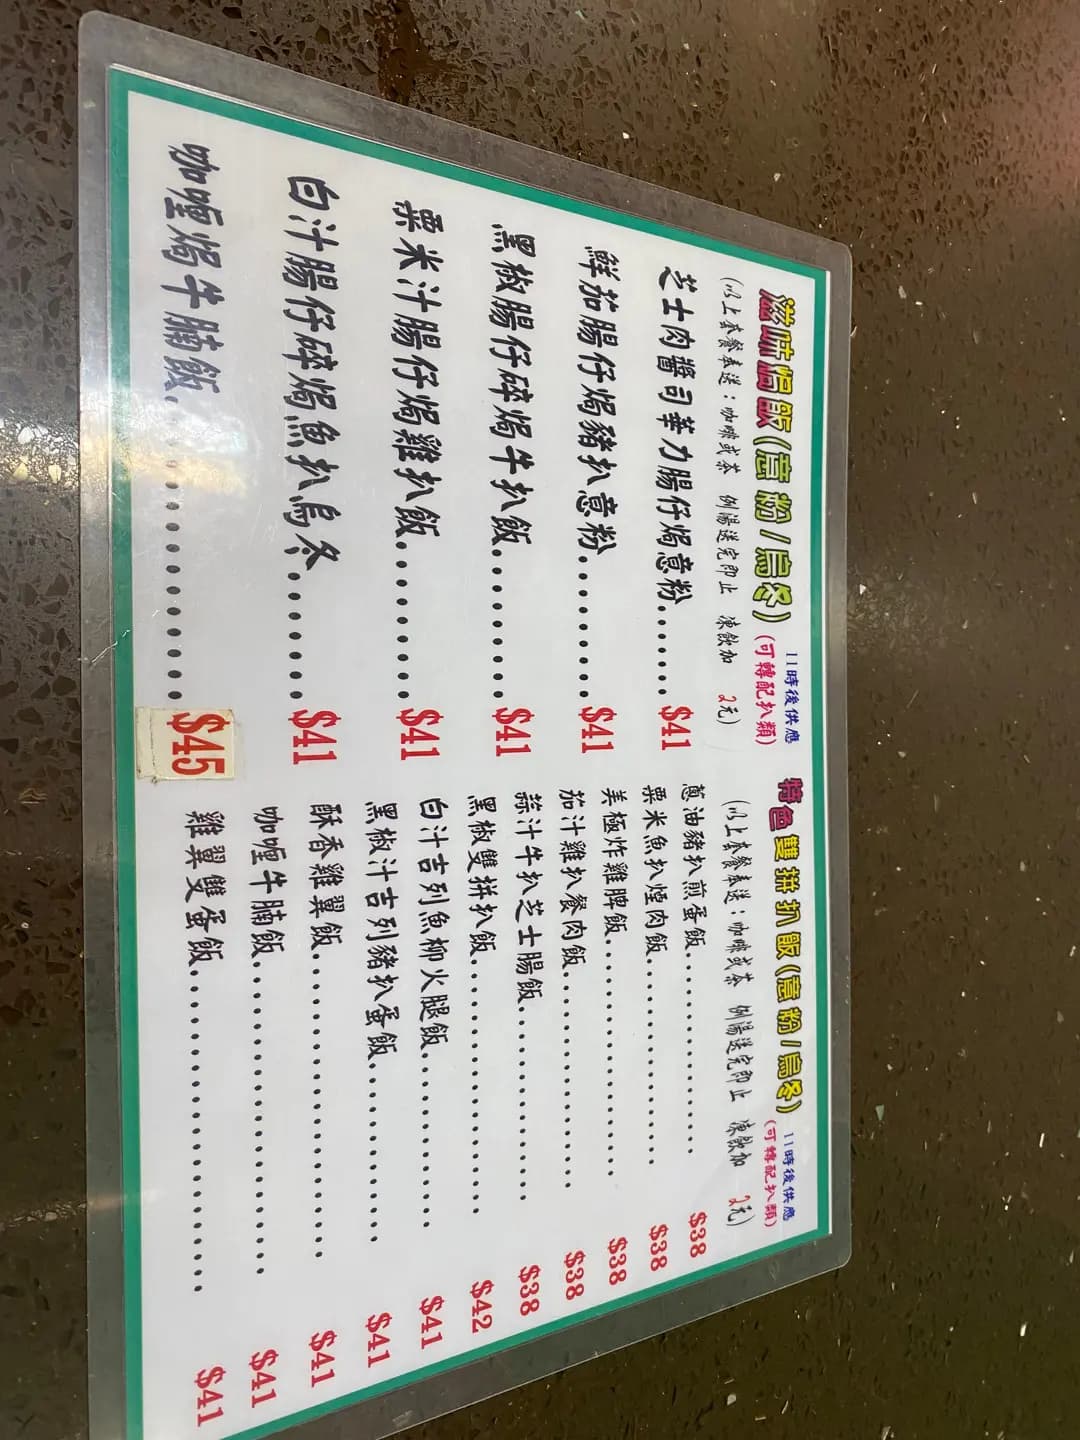 滋味焗飯(意粉/烏冬) 11時後供應
(可轉配扒類)
(以上套餐奉送：咖啡或茶 例湯送完即止 凍飲加 2元)
芝士肉醬司華力腸仔焗意粉....... $41
鮮茄腸仔焗豬扒意粉........... $41
黑椒腸仔碎焗牛扒飯........... $41
粟米汁腸仔焗雞扒飯........... $41
白汁腸仔碎焗魚扒烏冬......... $41
咖喱焗牛腩飯................ $45
特色雙拼扒飯(意粉/烏冬) 11時後供應
(可轉配扒類)
(以上套餐奉送：咖啡或茶 例湯送完即止 凍飲加 2元)
蔥油豬扒煎蛋飯................ $38
粟米魚扒煙肉飯................ $38
美極炸雞脾飯.................. $38
茄汁雞扒餐肉飯................ $38
蒜汁牛扒芝士腸飯.............. $38
黑椒雙拼扒飯.................. $42
白汁吉列魚柳火腿飯............ $41
黑椒汁吉列豬扒蛋飯............ $41
酥香雞翼飯.................... $41
咖喱牛腩飯.................... $41
雞翼雙蛋飯.................... $41